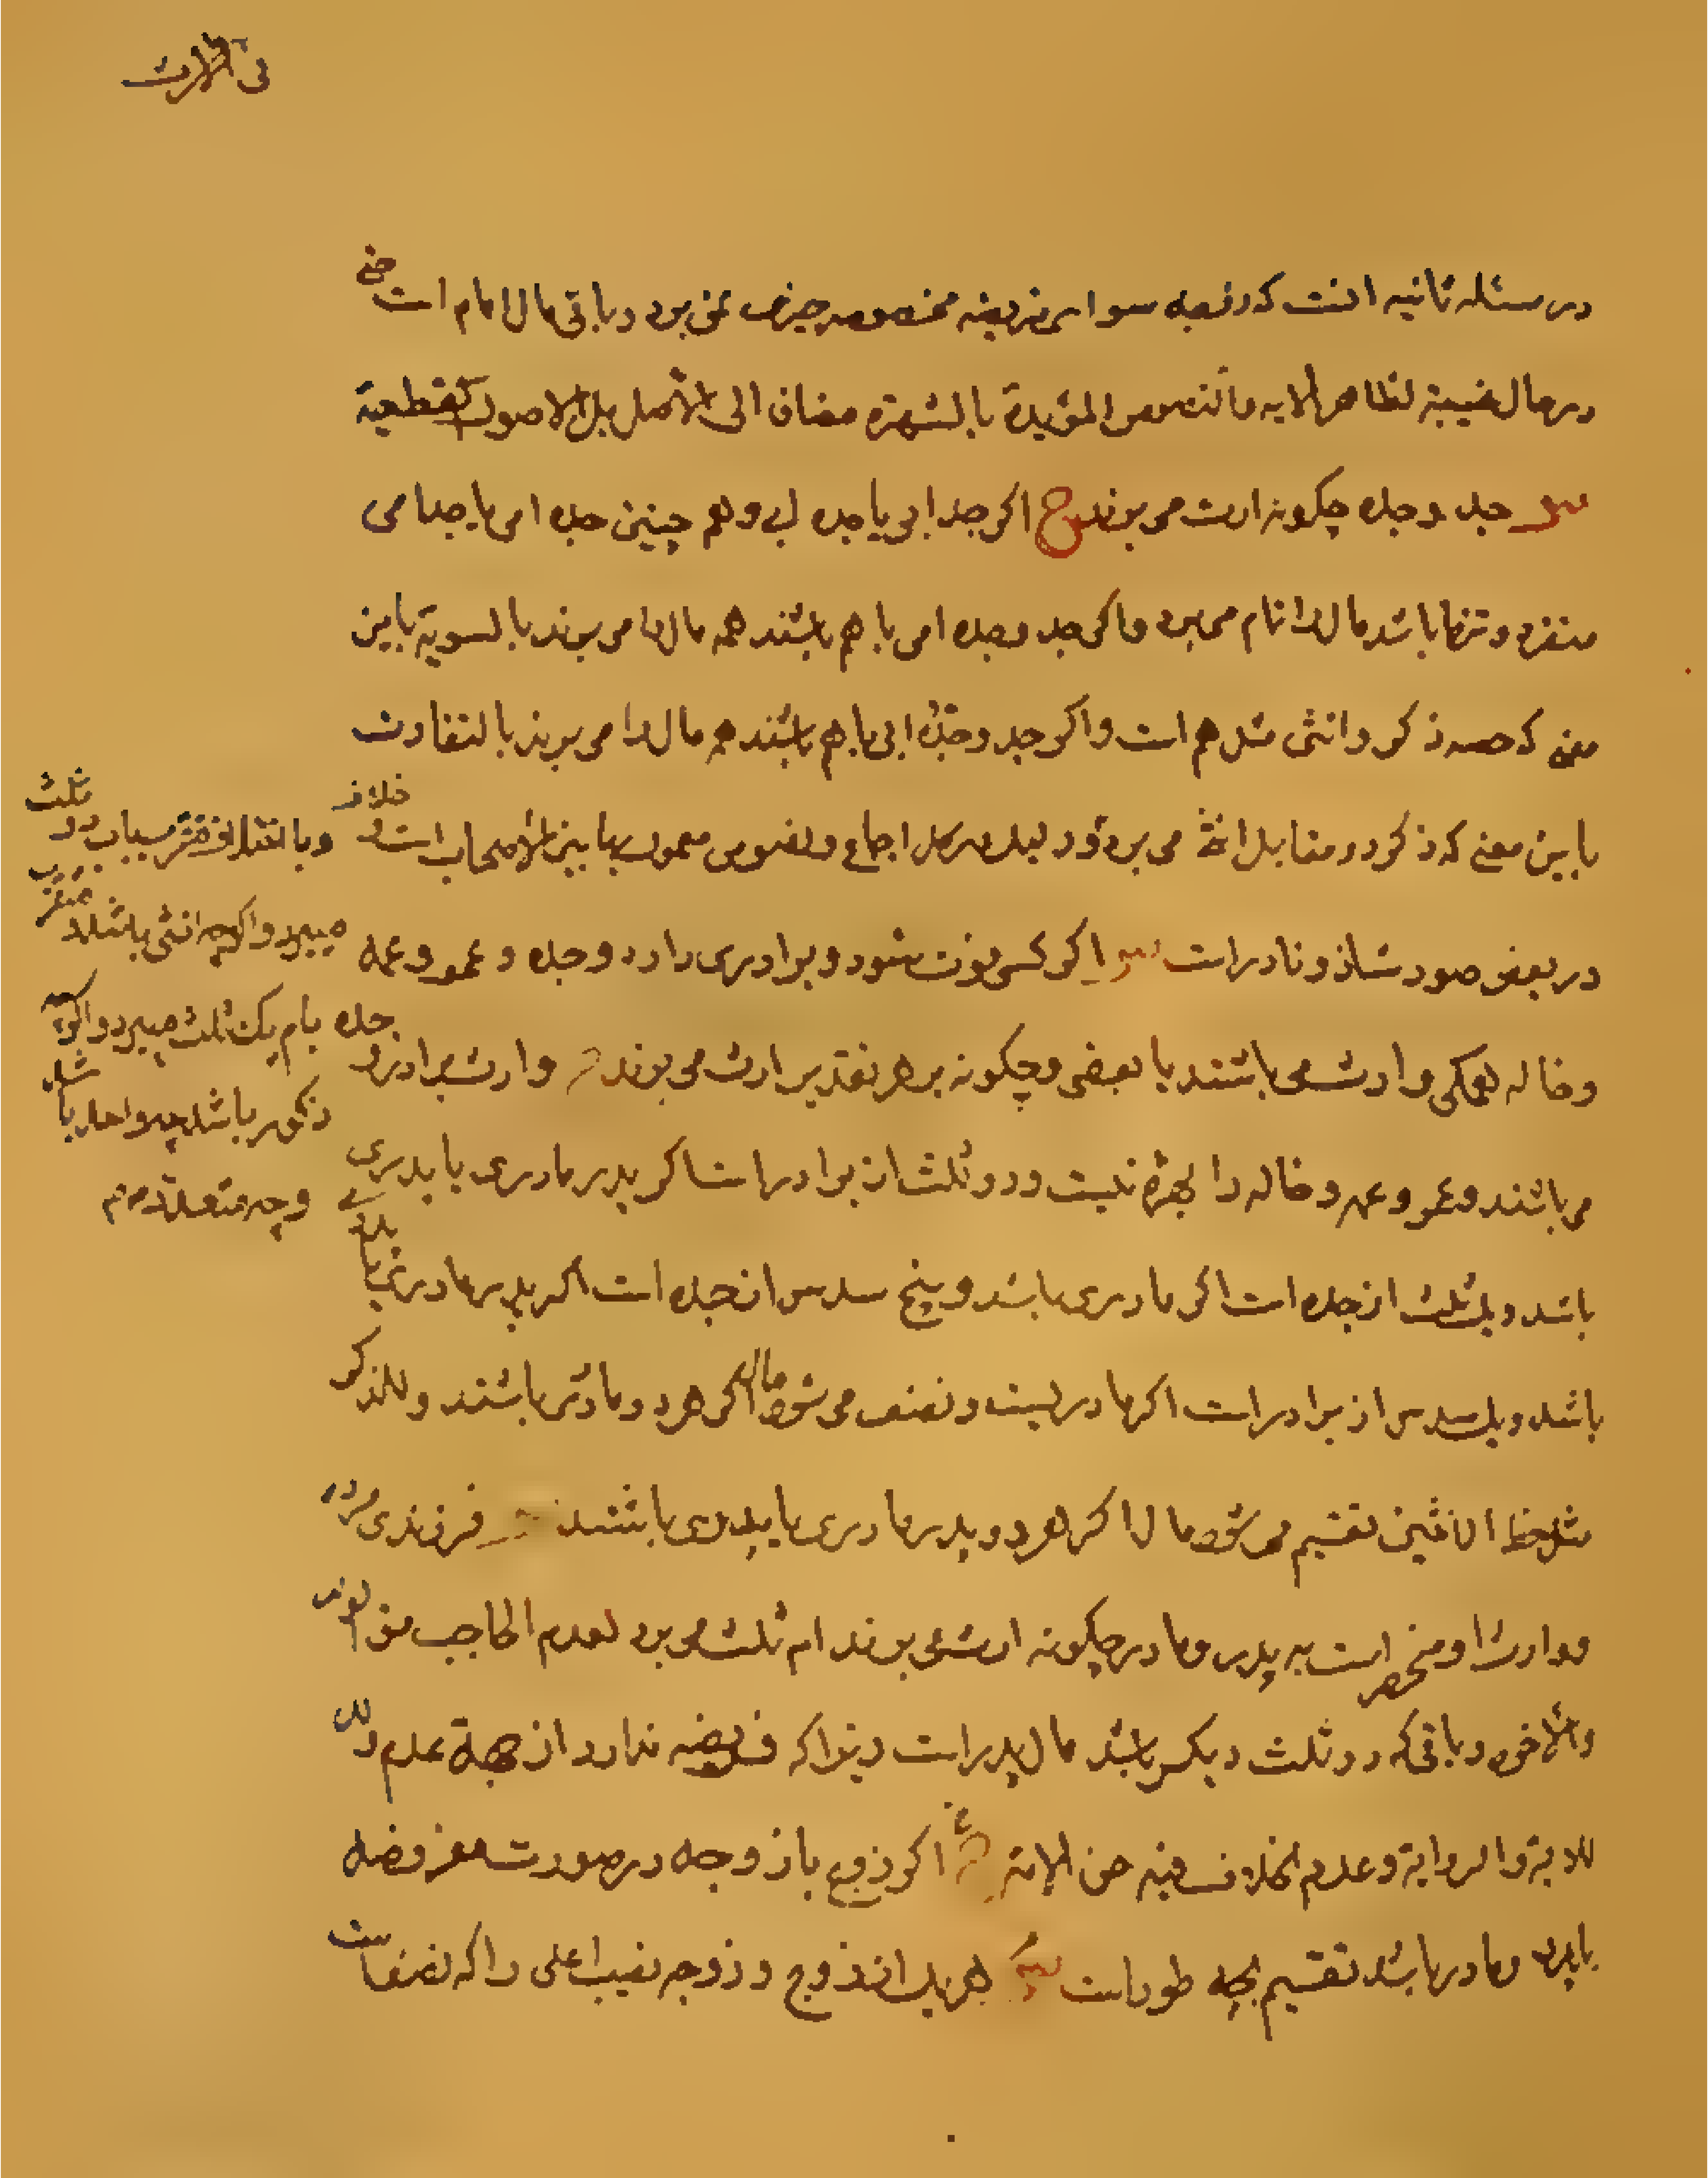 فی الارث
در مسئله ثانیه انست که زوجه سوای فریضه مخصوصه چیزی نمی برد و باقی مال امام است حتی
در حال غیبة لظاهر الایه والنصوص المؤیدة بالشهرة مضاف الی الاصل بل الاصول القطعیة
س جد و جده چکونه ارث می برند ج اکر جد ابی یا جده ابی و هم چنین جده امی یا جد امی
منفرد و تنها باشد مال را تمام می برد و اکر جد و جده امی با هم باشند همه مال را می برند بالسویة باین
معنی که حصه ذکر و انثی مثل هم است و اکر جد و جدهٔ ابی با هم باشند همه مال را می برند بالتفاوت
باین معنی که ذکر دو مقابل انثی می برد و دلیل هر یک اجماع و نصوص معمول بها بین الاصحاب است و خلاف
در بعض صور شاذ و نادر است س اکر کسی فوت شود و برادری دارد و جده و عمو و عمه
و خاله همکی وارث می باشند یا بعضی و چکونه بر هر تقدیر ارث می برند ج وارث برادر و
می باشند و عمو و عمه و خاله را بهرهٔ نیست و دو ثلث از برادر است اکر پدر مادری یا پدری
باشد و یک ثلث از جده است اکر مادری باشد و پنج سدس از جده است اکر پدر مادری یا پدری
باشد و یک سدس از برادر است اکر مادریست و نصف می شود مال اکر هر دو مادری باشند و للذکر
مثل حظ الانثیین تقسیم می شود مال اکر هر دو پدر مادری یا پدری باشند س فرزندی مرد
و وارث او منحصر است به پدر و مادر چکونه ارث می برند ام ثلث می برد لعدم الحاجب من الولد
والاخوه و باقی که دو ثلث دیکر باشد مال پدر است زیرا که فریضه ندارد از جهة عدم ولد
للایة والروایة و عدم الخلاف فیه من الامة س اکر زوج یا زوجه در صورت مفروضه
با پدر و مادر باشد تقسیم بچه طور است ج هر یک از زوج و زوجه نصیب اعلی را که نصف است
و با اختلاف دو ثلث
میبرد و اکرچه انثی باشد
جده یام یک ثلث میبرد و اکرچه
ذکور باشد چه واحد باشد
و چه متعدد